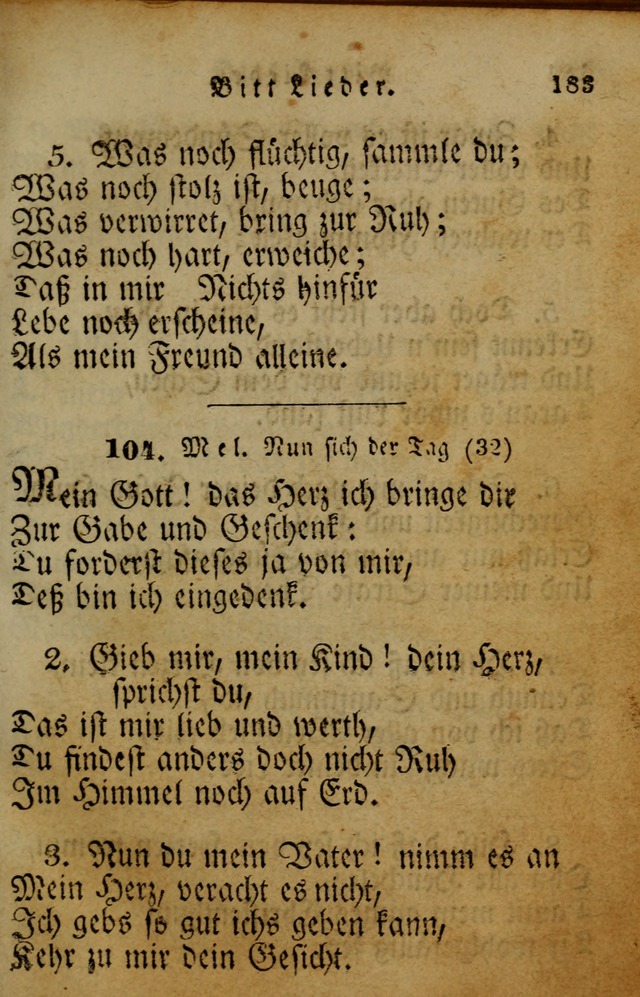 Bitt Lieder. 183
5. Was noch flüchtig, sammle du;
Was noch stolz ist, beuge;
Was verwirret, bring zur Ruh;
Was noch hart, erweiche;
Daß in mir Nichts hinfür
Lebe noch erscheine,
Als mein Freund alleine.
104. Mel. Nun sich der Tag (32)
Mein Gott! das Herz ich bringe dir
Zur Gabe und Geschenk:
Du forderst dieses ja von mir,
Deß bin ich eingedenk.
2. Gieb mir, mein Kind! dein Herz,
sprichst du,
Das ist mir lieb und werth,
Du findest anders doch nicht Ruh
Im Himmel noch auf Erd.
3. Nun du mein Vater! nimm es an
Mein Herz, veracht es nicht,
Ich gebs so gut ichs geben kann,
Kehr zu mir dein Gesicht.